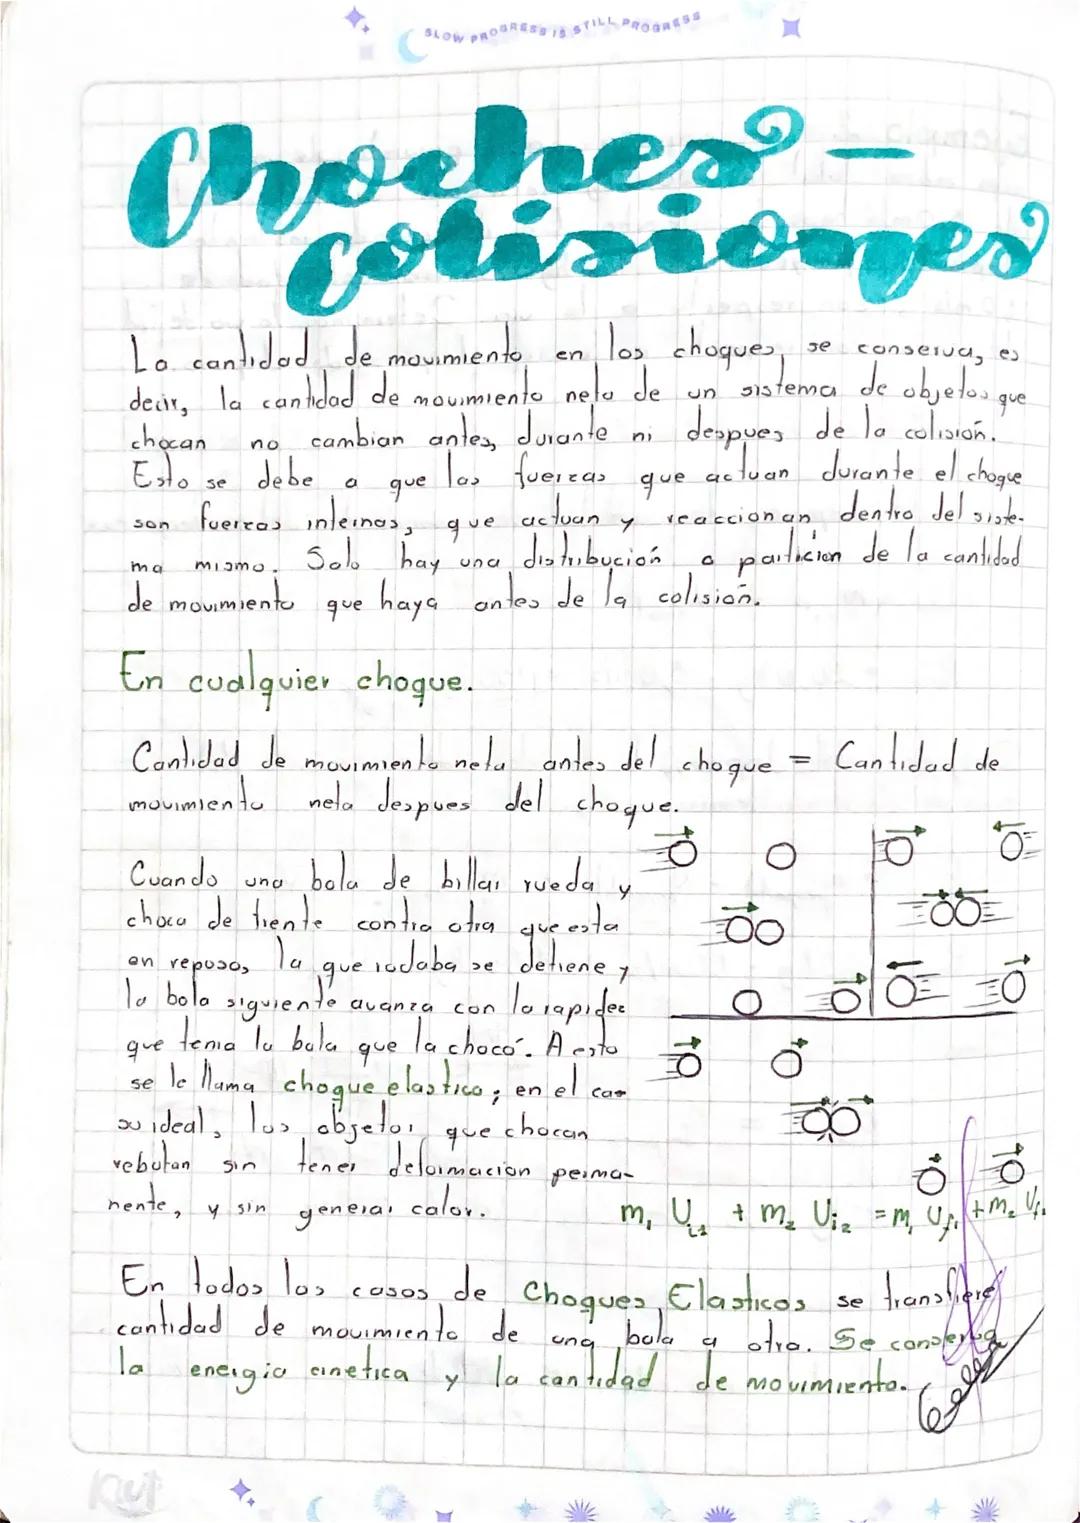 SLOW PROGRESS IS STILL PROGRESS
Choches -
colisiones
La cantidad de movimiento en los choques, se conserva, es
decir, la cantidad de movimiento neta de un sistema de objetos que
chocan no cambian antes, durante ni despues de la colisión.
Esto se debe a que las fuerzas que actuan durante el choque
son fuerzas internas, que actuan y reaccionan dentro del siste-
ma mismo. Solo hay una distribución o particion de la cantidad
de movimiento que haya antes de la colisión.
En cualquier choque.
Cantidad de movimiento neta antes del choque = Cantidad de
movimiento neta despues del choque.
Cuando una bola de billar rueda y
choca de frente contra otra que esta
en reposo, la que rodaba se detiene y
la bola siguiente avanza con la rapidez
que tenia la bola que la chocó. A esto
se le llama choque elastico; en el ca-
so ideal, los objetos que chocan
rebotan sin tener deformacion perma-
nente, y sin generar calor.
m₁ U_i1 + m₂ U_i2 = m₁ U_f1 + m₂ U_f2
En todos los casos de Choques Elasticos se transfiere
cantidad de movimiento de una bola a otra. Se conserva
la energia cinetica y la cantidad de movimiento.
Kiut